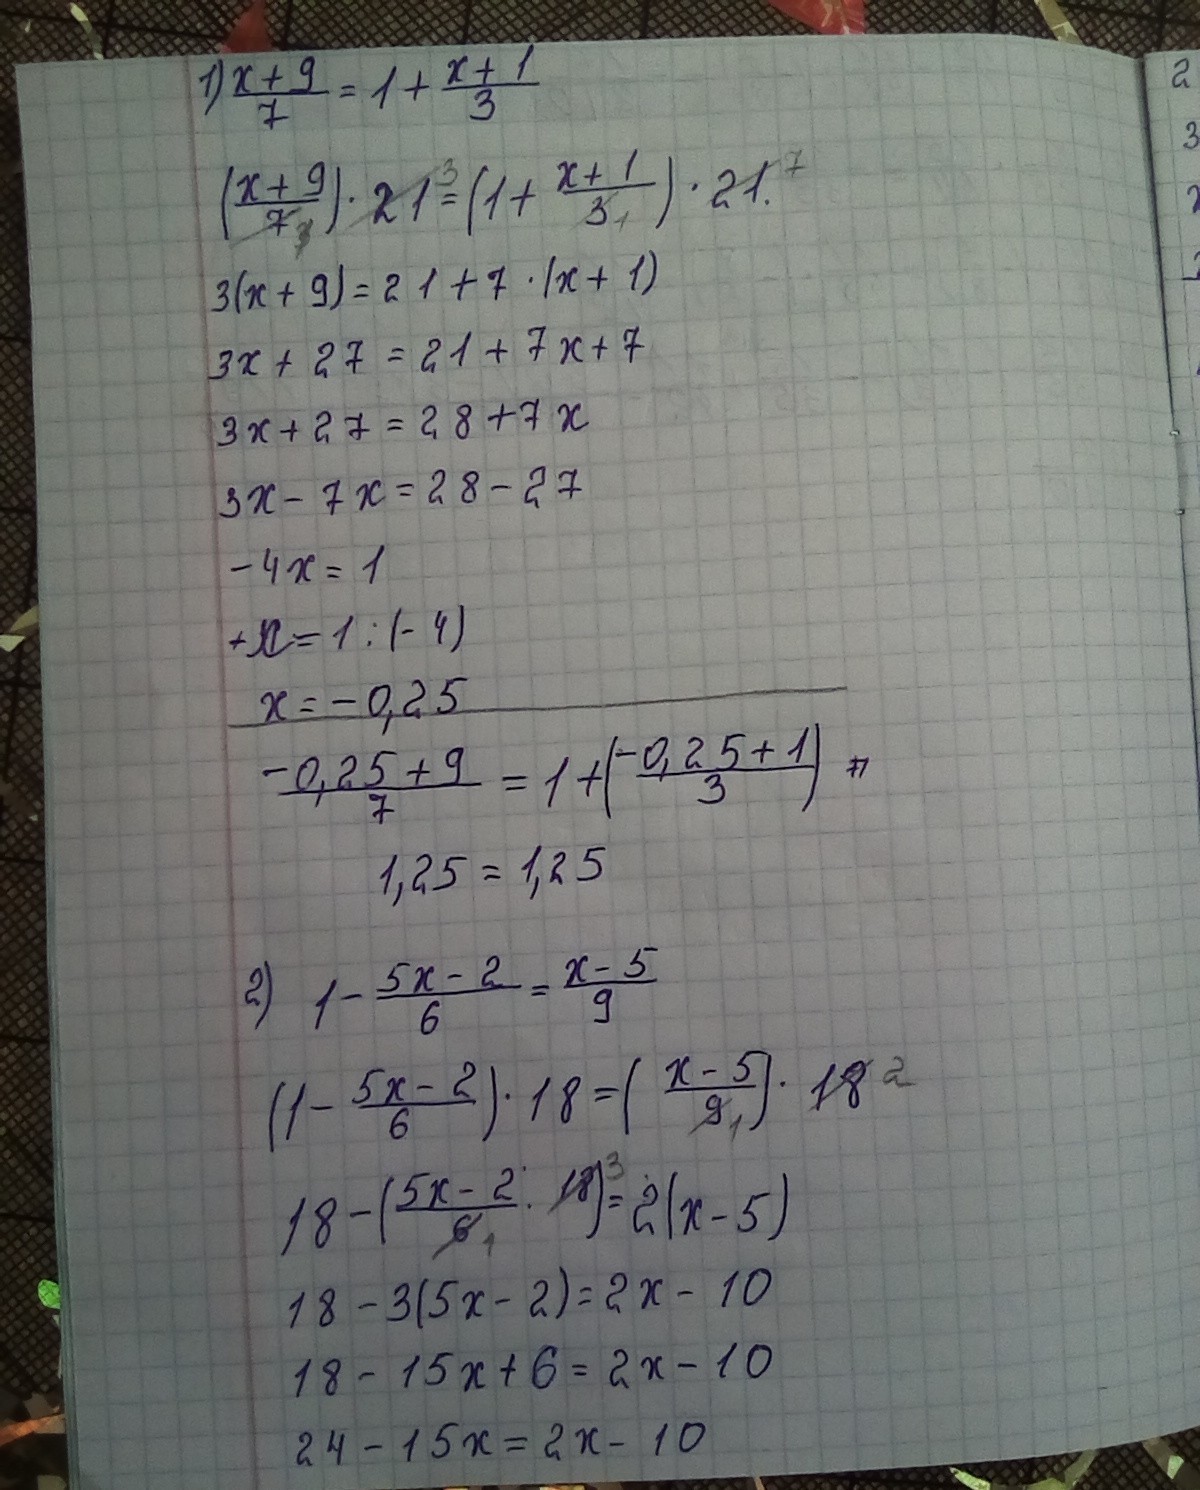 1) (x+9)/7 = 1 + (x+1)/3
((x+9)/7) · 21 = (1 + (x+1)/3) · 21.
3(x+9) = 21 + 7 · (x+1)
3x + 27 = 21 + 7x + 7
3x + 27 = 28 + 7x
3x - 7x = 28 - 27
-4x = 1
+x = 1 : (-4)
x = -0,25
(-0,25+9)/7 = 1 + ((-0,25+1)/3)
1,25 = 1,25
2) 1 - (5x-2)/6 = (x-5)/9
(1 - (5x-2)/6) · 18 = ((x-5)/9) · 18
18 - ((5x-2)/6 · 18) = 2(x-5)
18 - 3(5x-2) = 2x - 10
18 - 15x + 6 = 2x - 10
24 - 15x = 2x - 10